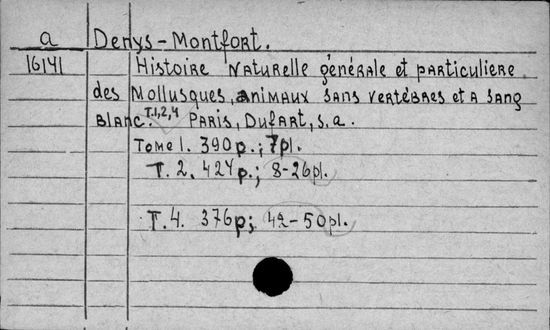 a Denys-Montfort.
16141 Histoire naturelle générale et particuliere
des Mollusques, animaux sans vertèbres et a sang
blanc. T.1,2,4 Paris, Dufart, s.a.
Tome 1. 390p.; 7pl.
T. 2. 424p.; 8-26pl.
T. 4. 376p; 42-50pl.